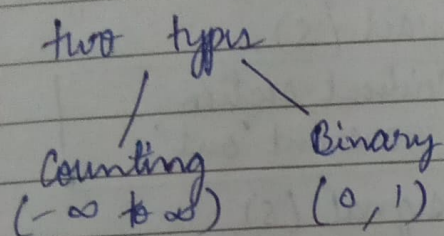 two types
Counting Binary
(-∞ to ∞) (0, 1)